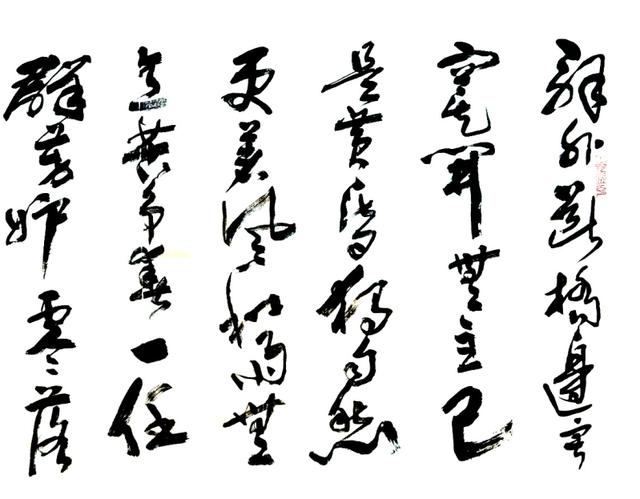 驛外斷橋邊寂
寞開無主已
是黄昏獨自愁
更著風和雨無
意苦爭春一任
群芳妒零落